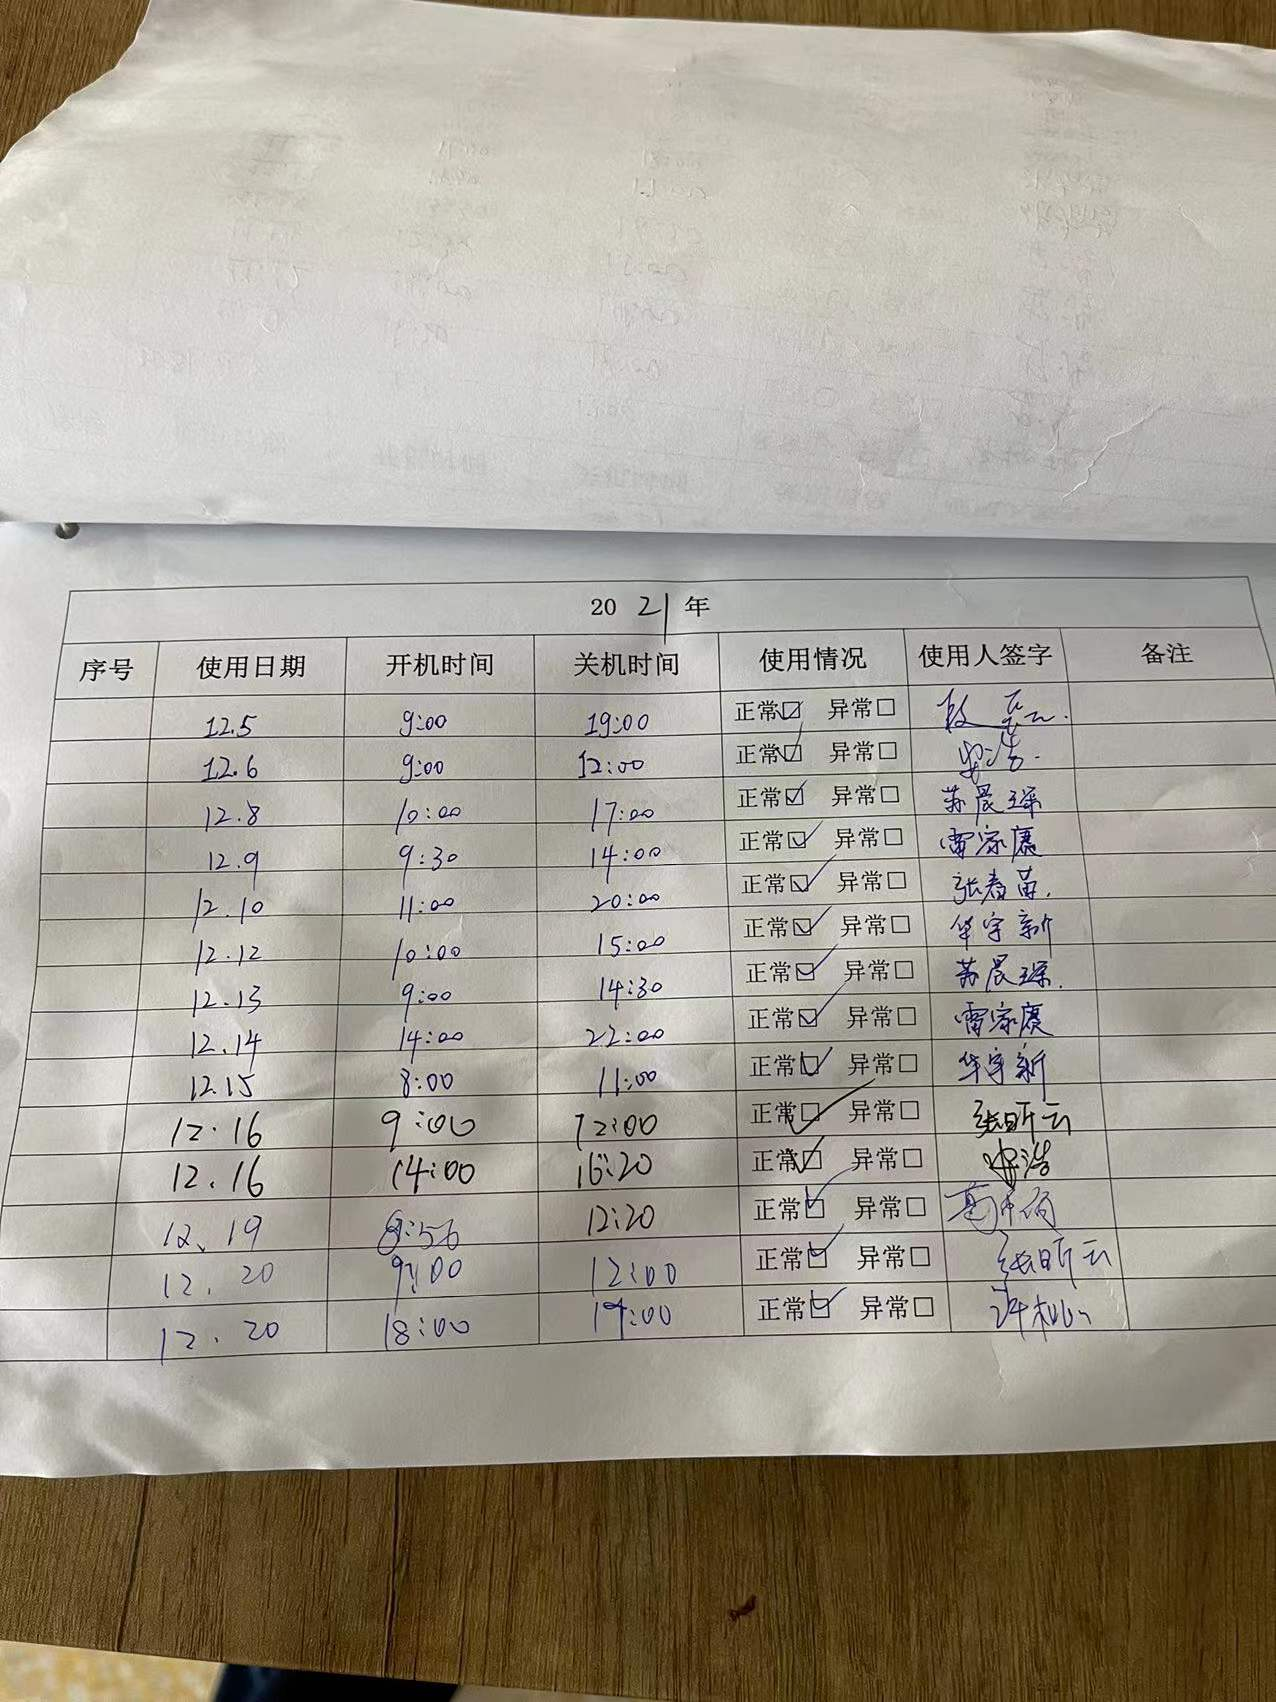 20 21 年
序号 使用日期 开机时间 关机时间 使用情况 使用人签字 备注
12.5 9:00 19:00 正常☑ 异常□
12.6 9:00 12:00 正常☑ 异常□
12.8 10:00 17:00 正常☑ 异常□ 苏晨琛
12.9 9:30 14:00 正常☑ 异常□ 雷家赓
12.10 11:00 20:00 正常☑ 异常□ 张春苗.
12.12 10:00 15:00 正常☑ 异常□ 华宇新
12.13 9:00 14:30 正常☑ 异常□ 苏晨琛.
12.14 14:00 22:00 正常☑ 异常□ 雷家赓
12.15 8:00 11:00 正常☑ 异常□ 华宇新
12.16 9:00 12:00 正常☑ 异常□ 张昕云
12.16 14:00 16:20 正常☑ 异常□
12.19 8:56 12:20 正常☑ 异常□
12.20 9:00 12:00 正常☑ 异常□ 张昕云
12.20 18:00 19:00 正常☑ 异常□